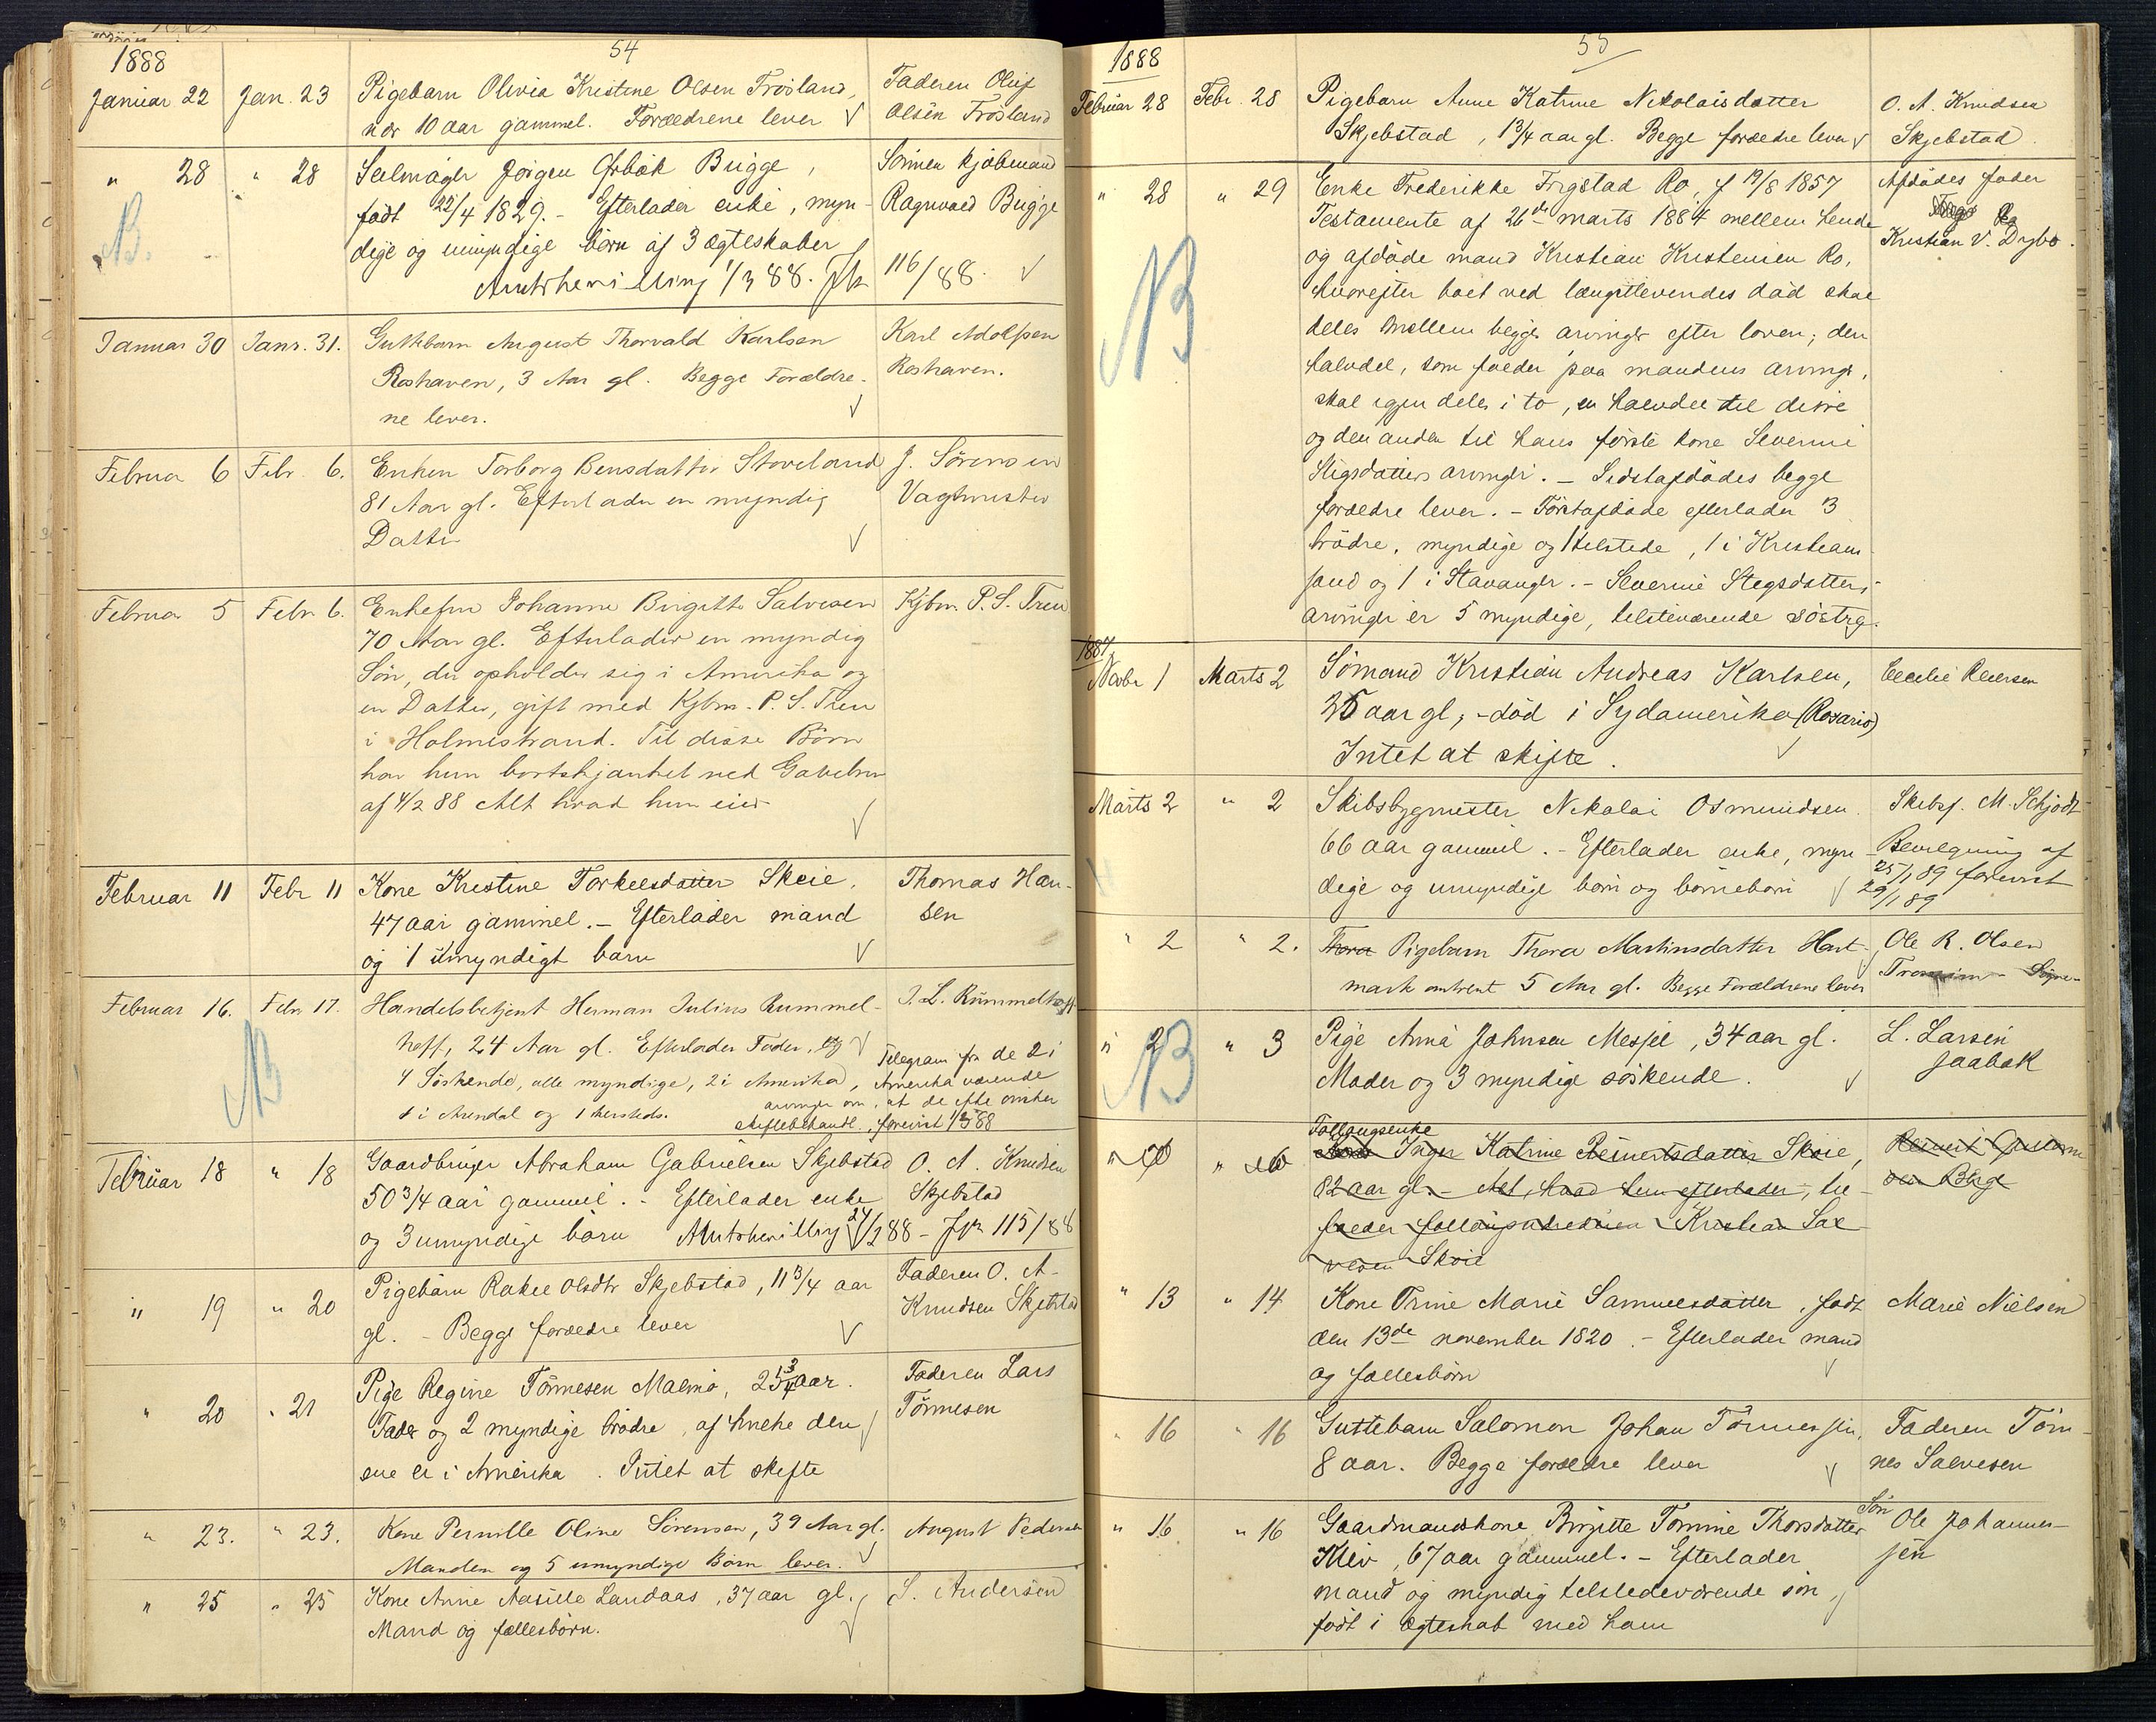 54
1888
Januar 22 Jan. 23 Pigebarn Olivia Kristine Olsen Frösland, Faderen Oluf
nær 10 aar gammel. Forældrene lever Olsen Frösland
" 28 " 28 Salmager Jörgen Bugge, Sönnen kjöbmand
född 22/4 1829. - Efterlader enke, myn- Ragnvald Bugge
dige og umyndige börn af 3 ægteskaber
1/3 88. 116/88.
NB.
Januar 30 Janr. 31. Gutkbarn August Thorvald Karlsen Karl Adolfsen
Roshaven, 3 Aar gl. Begge Forældre- Roshaven.
ne lever.
Februar 6 Febr. 6. Enken Torborg Bensdatter Stoveland J. Sörensen
81 Aar gl. Efterlader en myndig Vagtmester
Datter
Februar 5 Febr. 6. Enkefru Johanne Birgitte Salvesen Kjbm. P. S. Treu
70 Aar gl. Efterlader en myndig
Sön, der opholder sig i Amerika og
en Datter, gift med Kjbm. P. S. Treu
i Holmestrand. Til disse Börn
har hun bortskjænket ved Gavebrev
af 4/2 88 Alt hvad hun eier
Februar 11 Febr 11 Kone Kristine Torkelsdatter Skeie, Thomas Han-
47 aar gammel. - Efterlader mand sen
og 1 umyndigt barn
Februar 16. Febr 17. Handelsbetjent Herman Julius Rummel- J. L. Rummelhoff
hoff, 24 Aar gl. Efterlader Fader, og
4 Söskende, alle myndige, 2 i Amerika,
1 i Arendal og 1 hersteds.
Telegram fra de 2 i
Amerika værende
arvinger om, at de ikke önsker
skiftebehandl., forevist 88
NB
Februar 18 " 18 Gaardbruger Abraham Gabrielsen Skjebstad O. A. Knudsen
50 3/4 aar gammel. - Efterlader enke Skjebstad
og 3 umyndige börn 24/2 88 - 115/88
" 19 " 20 Pigebarn Rakel Olsdtr Skjebstad, 11 3/4 aar Faderen O. A.
gl. - Begge forældre lever Knudsen Skjebstad
" 20 " 21 Pige Regine Tönnesen Malmö, 25 aar. Faderen Lars
Fader og 2 myndige brödre, af hvilke den Tönnesen
ene er i Amerika. Intet at skifte
" 23. " 23. Kone Pernille Oline Sörensen, 39 Aar gl. August Pedersen
Manden og 5 umyndige Börn lever.
" 25 " 25 Kone Anne Aasille Landaas, 37 aar gl. S. Andersen
Mand og fællesbörn.
55
1888
Februar 28 Febr. 28 Pigebarn Anne Katrine Nikolaisdatter O. A. Knudsen
Skjebstad, 1 3/4 aar gl. Begge forældre lever Skjebstad.
" 28 " 29 Enke Frederikke Frigstad Ro, f 19/8 1857 Afdödes fader
Testamente af 26de marts 1884 mellem hende
og afdöde mand Kristian Kristensen Ro, Kristian V. Drybo.
hvorefter boet ved længstlevendes död skal
deles mellem begges arvinger efter loven; den
halvdel, som falder paa mandens arvinger,
skal igjen deles i to, en halvdel til disse
og den anden til hans förste kone Severine
Stigsdatters arvinger. - Sidstafdödes begge
forældre lever. - Förstafdöde efterlader 3
brödre, myndige og 1 tilstede, 1 i Kristian-
sand og 1 i Stavanger. - Severine Stegsdatters
arvinger er 5 myndige, tilsteværende söstre.
NB
1887
Novbr 1 Marts 2 Sömand Kristian Andreas Karlsen, Cecilie
35 aar gl, - död i Sydamerika (Rosario)
Intet at skifte.
Marts 2 " 2 Skibsbygmester Nikolai Osmundsen Skibsf. M. Schjödt
66 aar gammel. - Efterlader enke, myn- Bevilgning af
dige og umyndige börn og börnebörn 25/1 89 forevist
29/1 89
" 2 " 2. Thora Pigebarn Thora Martinsdatter Hart- Ole R. Olsen
mark omtrent 5 Aar gl. Begge Forældrene lever
" 2 " 3 Pige Anna Johnsen Mesjel, 34 aar gl. L. Larsen
Moder og 3 myndige söskende. Saabak
NB
Föllaugsenke
Inger Katrine Reinertsdatter Skeie,
82 aar gl. - Alt, hvad hun efterlader, til-
falder Kristian Sal-
vesen Skeie
" 13 " 14 Kone Trine Marie Samuelsdatter, född Marie Nielsen
den 13de november 1820. - Efterlader mand
og fællesbörn
" 16 " 16 Guttebarn Salomon Johan Tönnessen, Faderen Tön-
8 aar. Begge forældre lever nes Salvesen
" 16 " 16 Gaardmandskone Birgitte Tomine Thorsdatter Sön Ole Johannes-
Klev, 67 aar gammel. - Efterlader sen
mand og myndig tilstedeværende sön,
född i ægteskab med ham